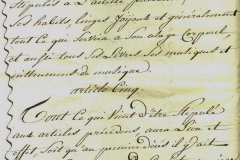 Stipulés à l'article
Ses habits, Linges Joyaux et généralement
tout Ce qui Servira a Son usage Corporel
et aussi tous Ses Livres Ses musiques et
instrumens de musique.
article Cinq
Tout Ce qui Vient d'être Stipulé
aux articles précédens, aura Lieu et
effet Soit qu'au premier décès il y ait